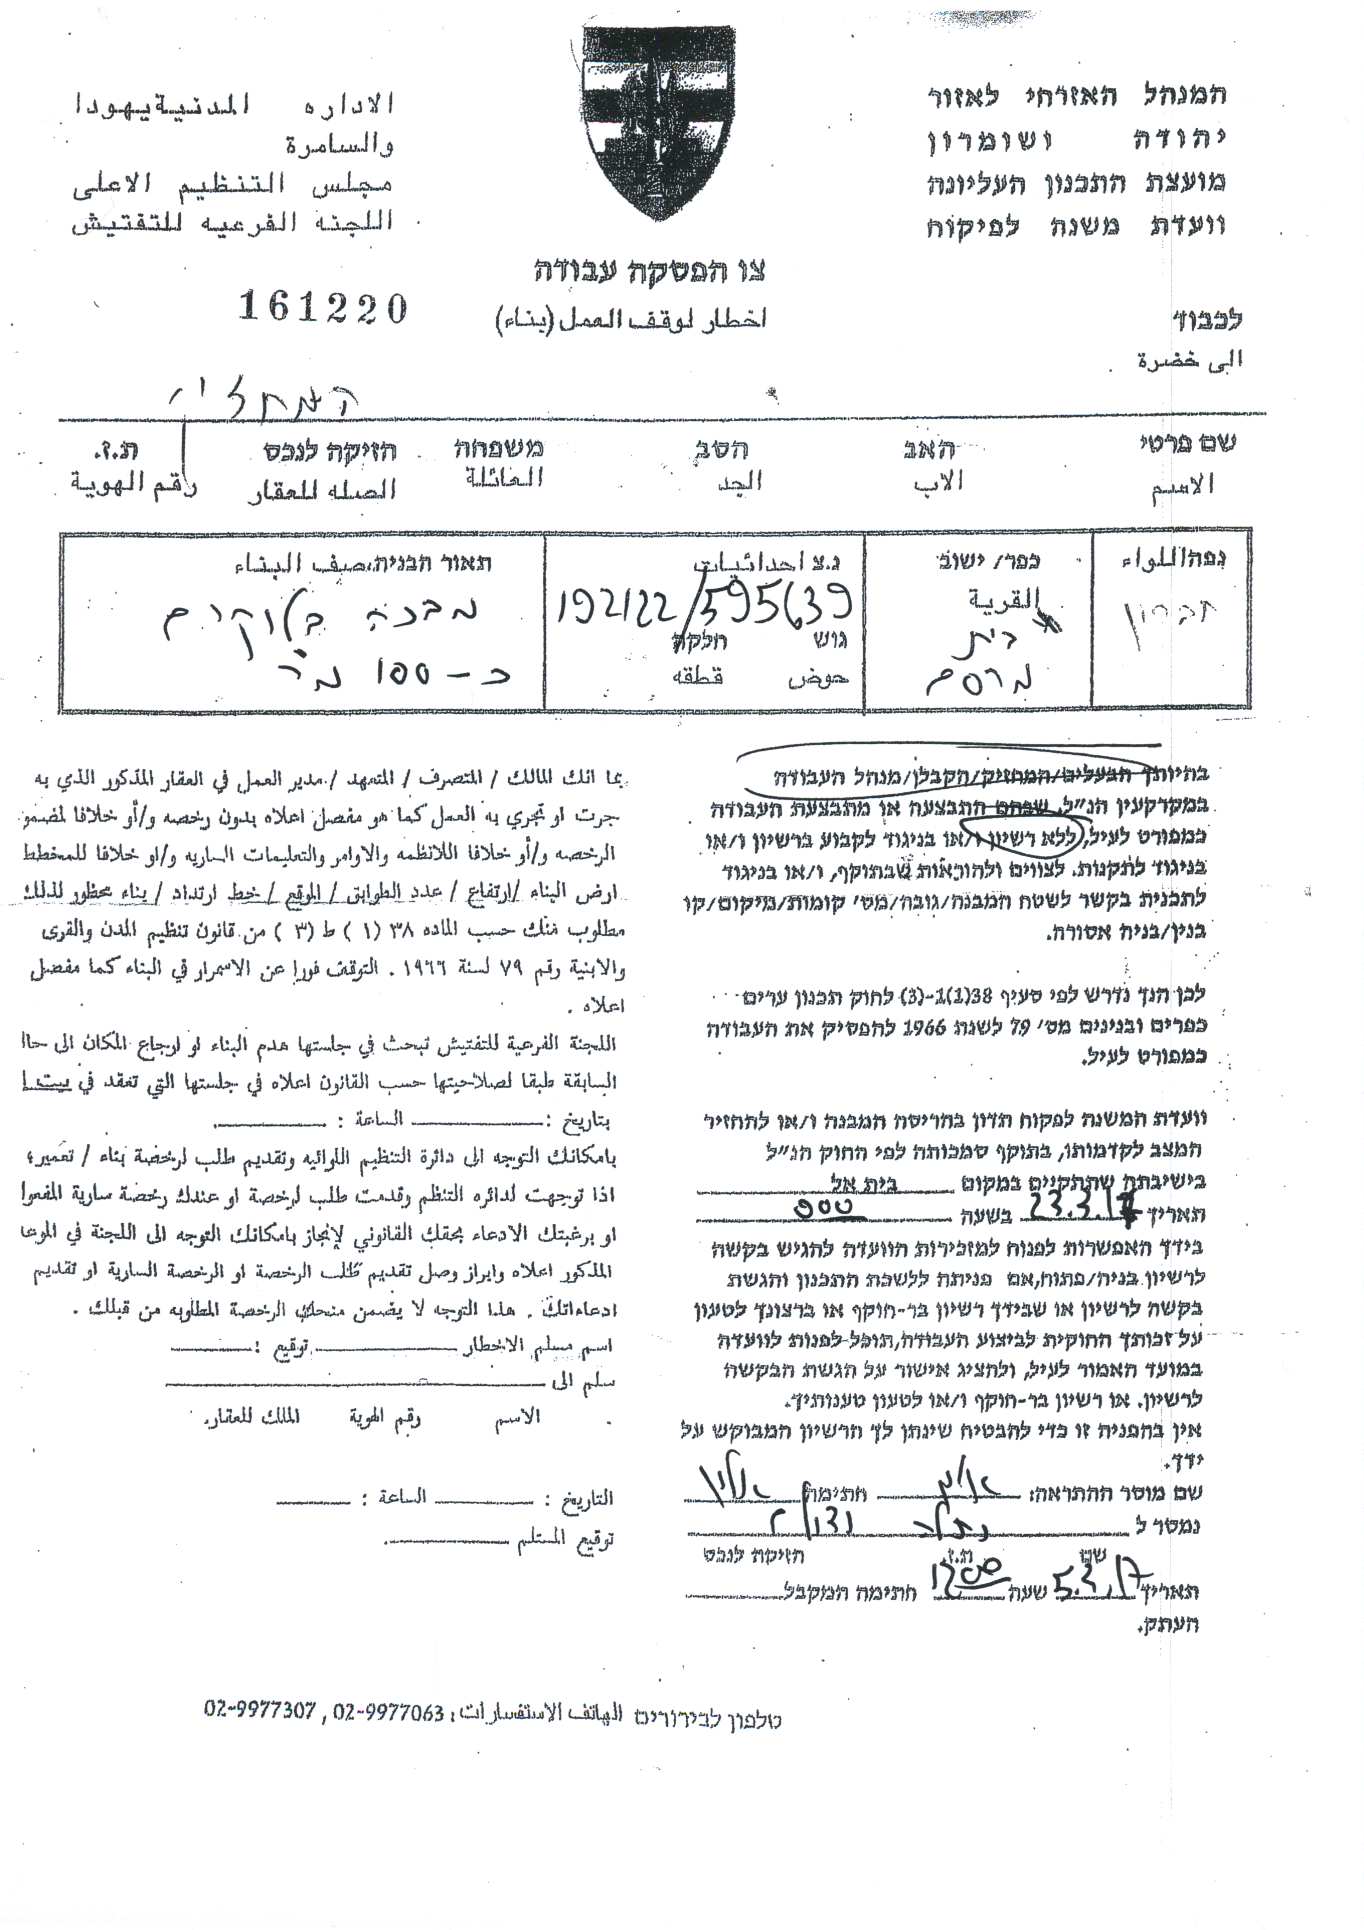 המנהל האזרחי לאזור
יהודה ושומרון
מועצת התכנון העליונה
וועדת משנה לפיקוח
الاداره المدنية يهودا
والسامرة
مجلس التنظيم الاعلى
اللجنه الفرعيه للتفتيش
צו הפסקת עבודה
اخطار لوقف العمل (بناء)
161220
לכבוד
الى خضرة
המחזיק
שם פרטי האב הסב משפחה הזיקה לנכס ת.ז.
الاسم الاب الجد العائلة الصله للعقار رقم الهوية
נפה اللواء
חברון
כפר/ ישוב
القرية
בית
מרסם
נ.צ احداثيات
192122/595639
גוש חלקה
حوض قطقه
תאור הבניה صيف البناء
מבנה בלוקים
כ-100 מ"ר
בהיותך הבעלים/המחזיק/הקבלן/מנהל העבודה
במקרקעין הנ"ל, שבהם התבצעה או מתבצעת העבודה
כמפורט לעיל, ללא רשיון ו/או בניגוד לקבוע ברשיון ו/או
בניגוד לתקנות. לצווים ולהוראות שבתוקף, ו/או בניגוד
לתכנית בקשר לשטח המבנה/גובה/מס' קומות/מיקום/קו
בנין/בניה אסורה.
לכן הנך נדרש לפי סעיף 38(1)1-(3) לחוק תכנון ערים
כפרים ובנינים מס' 79 לשנת 1966 להפסיק את העבודה
כמפורט לעיל.
וועדת המשנה לפקוח תדון בהריסת המבנה ו/או להחזיר
המצב לקדמותו, בתוקף סמכותה לפי החוק הנ"ל
בישיבתה שתתקיים במקום בית אל
תאריך 23.3.17 בשעה 900
בידך האפשרות לפנות למזכירות הוועדה להגיש בקשה
לרשיון בניה/פתוח, אם פניתה ללשכת התכנון והגשת
בקשה לרשיון או שבידך רשיון בר-תוקף או ברצונך לטעון
על זכותך החוקית לביצוע העבודה, תוכל לפנות לוועדה
במועד האמור לעיל, ולהציג אישור על הגשת הבקשה
לרשיון. או רשיון בר-תוקף ו/או לטעון טענותיך.
אין בהפניה זו כדי להבטיח שינתן לך הרשיון המבוקש על
ידך.
שם מוסר ההתראה: חתימה
נמסר ל
שם ת.ז. הזיקה לנכס
תאריך 5.3.17 שעה 1200 חתימה המקבל
העתק.
بما انك المالك / المتصرف / المتعهد / مدير العمل في العقار المذكور الذي به
جرت او تجري به العمل كما هو مفصل اعلاه بدون رخصه و/أو خلافا لمضمو
الرخصه و/أو خلافا اللانظمه والاوامر والتعليمات الساريه و/او خلافا للمخطط
ارض البناء /ارتفاع / عدد الطوابق / الموقع / خط ارتداد / بناء محظور لذلك
مطلوب منك حسب الماده ٣٨ (١) ط (٣) من قانون تنظيم المدن والقرى
والابنية رقم ٧٩ لسنة ١٩٦٦ . التوقف فورا عن الاسمرار في البناء كما مفصل
اعلاه .
اللجنة الفرعية للتفتيش تبحث في جلستها هدم البناء او ارجاع المكان الى حاا
السابقة طبقا لصلاحيتها حسب القانون اعلاه في جلستها التي تعقد في بيت ا
بتاريخ : الساعة :
بامكانك التوجه الى دائرة التنظيم اللوائيه وتقديم طلب لرخصة بناء / تعمير؛
اذا توجهت لدائره التنظم وقدمت طلب لرخصة او عندك رخصة سارية المفعوا
او برغبتك الادعاء بحقك القانوني لإنجاز بامكانك التوجه الى اللجنة في الموعا
المذكور اعلاه وابراز وصل تقديم طلب الرخصة او الرخصة السارية او تقديم
ادعاءاتك . هذا التوجه لا يضمن منحك الرخصة المطلوبه من قبلك .
اسم مسلم الاخطار توقيع :
سلم الى
الاسم رقم الهوية المالك للعقار.
التاريخ : الساعة :
توقيع المستلم
טלפון לבירורים الهاتف الاستفسارات: 02-9977063 , 02-9977307